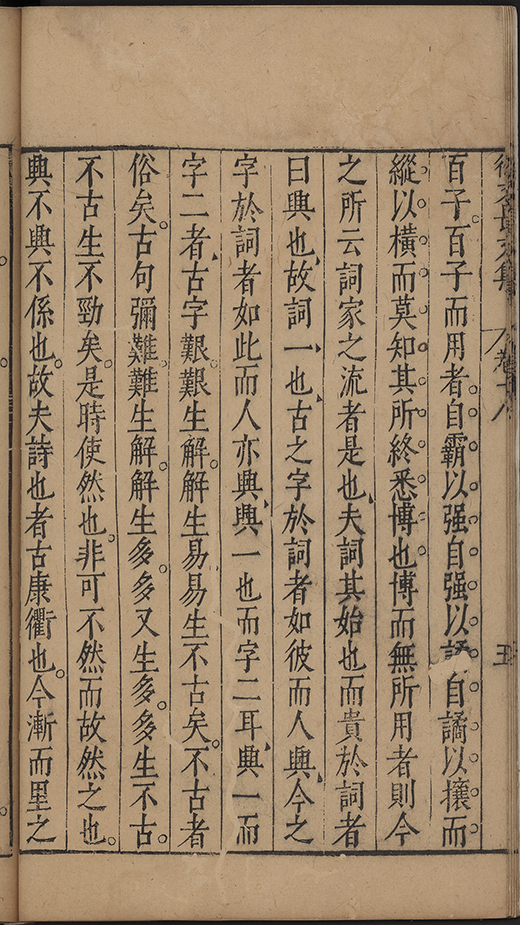 徐文長文集 卷十八 五
百子百子而用者自霸以强自强以譎自譎以攘而
縱以橫而莫知其所終悉博也博而無所用者則今
之所云詞家之流者是也夫詞其始也而貴於詞者
曰興也故詞一也古之字於詞者如彼而人興今之
字於詞者如此而人亦興興一也而字二耳興一而
字二者古字艱艱生解解生易易生不古矣不古者
俗矣古句彌難難生解解生多多又生多多生不古
不古生不勁矣是時使然也非可不然而故然之也
興不興不係也故夫詩也者古康衢也今漸而里之